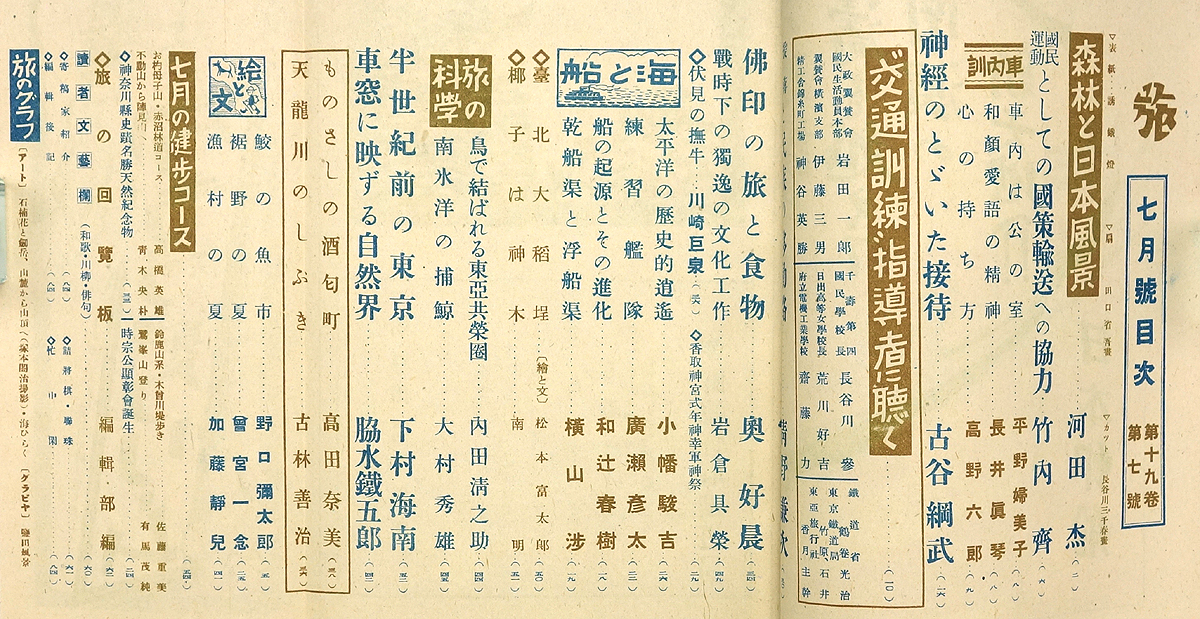 旅
七月號目次
第十九卷
第七號
▽表紙・誘蛾燈
▽扇
田口省吾畫
▽カット
長谷川三千春畫
森林と日本風景
河田杰
國民運動としての國策輸送への協力
竹內齊
車內訓
車內は公の室
平野婦美子
和顏愛語の精神
長井眞琴
心の持ち方
高野六郎
神經のとゞいた接待
古谷綱武
交通訓練指導者に聽く
大政翼贊會國民生活動員本部
岩田一郞
翼贊會橫濱支部
伊藤三男
精工會錦糸町工場
神谷英勝
千壽第四國民學校長
長谷川參
日出高等女學校長
荒川好吉
府立電機工業學校
齋藤力
鐵道省
鶴卷光治
東京鐵道局
竹原石井
東亞旅行社
香月主幹
佛印の旅と食物
奧好晨
戰時下の獨逸の文化工作
岩倉具榮
◇伏見の撫牛
川崎巨泉
◇香取神宮式年神幸軍神祭
海と船
太平洋の歷史的逍遙
小幡駿吉
練習艦隊
廣瀨彥太
船の起源とその進化
和辻春樹
乾船渠と浮船渠
橫山涉
◇臺北大稻埕
〔繪と文〕
松本富太郞
◇椰子は神木
南明
旅の科學
鳥で結ばれる東亞共榮圈
內田淸之助
南氷洋の捕鯨
大村秀雄
半世紀前の東京
下村海南
車窓に映ずる自然界
脇水鐵五郎
ものさしの酒匂町
高田奈美
天龍川のしぶき
古林善治
繪と文
鮫の魚市
野口彌太郎
裾野の夏
曾宮一念
漁村の夏
加藤靜兒
七月の健步コース
お杓母子山・赤沼林道コース
高橋英雄
不動山から陣見山へ
靑木央朴
鈴鹿山系・木曾川堤步き
佐藤重美
鷲峯山登り
有馬茂純
◇神奈川縣史蹟名勝天然紀念物
◇時宗公顯彰會誕生
◇旅の回覽板
編輯部編
讀者文藝欄
(和歌・川柳・俳句)
◇寄稿家紹介
◇詰將棋・聯珠
◇編輯後記
◇忙中閑
旅のグラフ
〔アート〕石楠花と劍岳、山麓から山頂へ(塚本閤治撮影)・海ひらく
〔グラビヤ〕鹽田風景